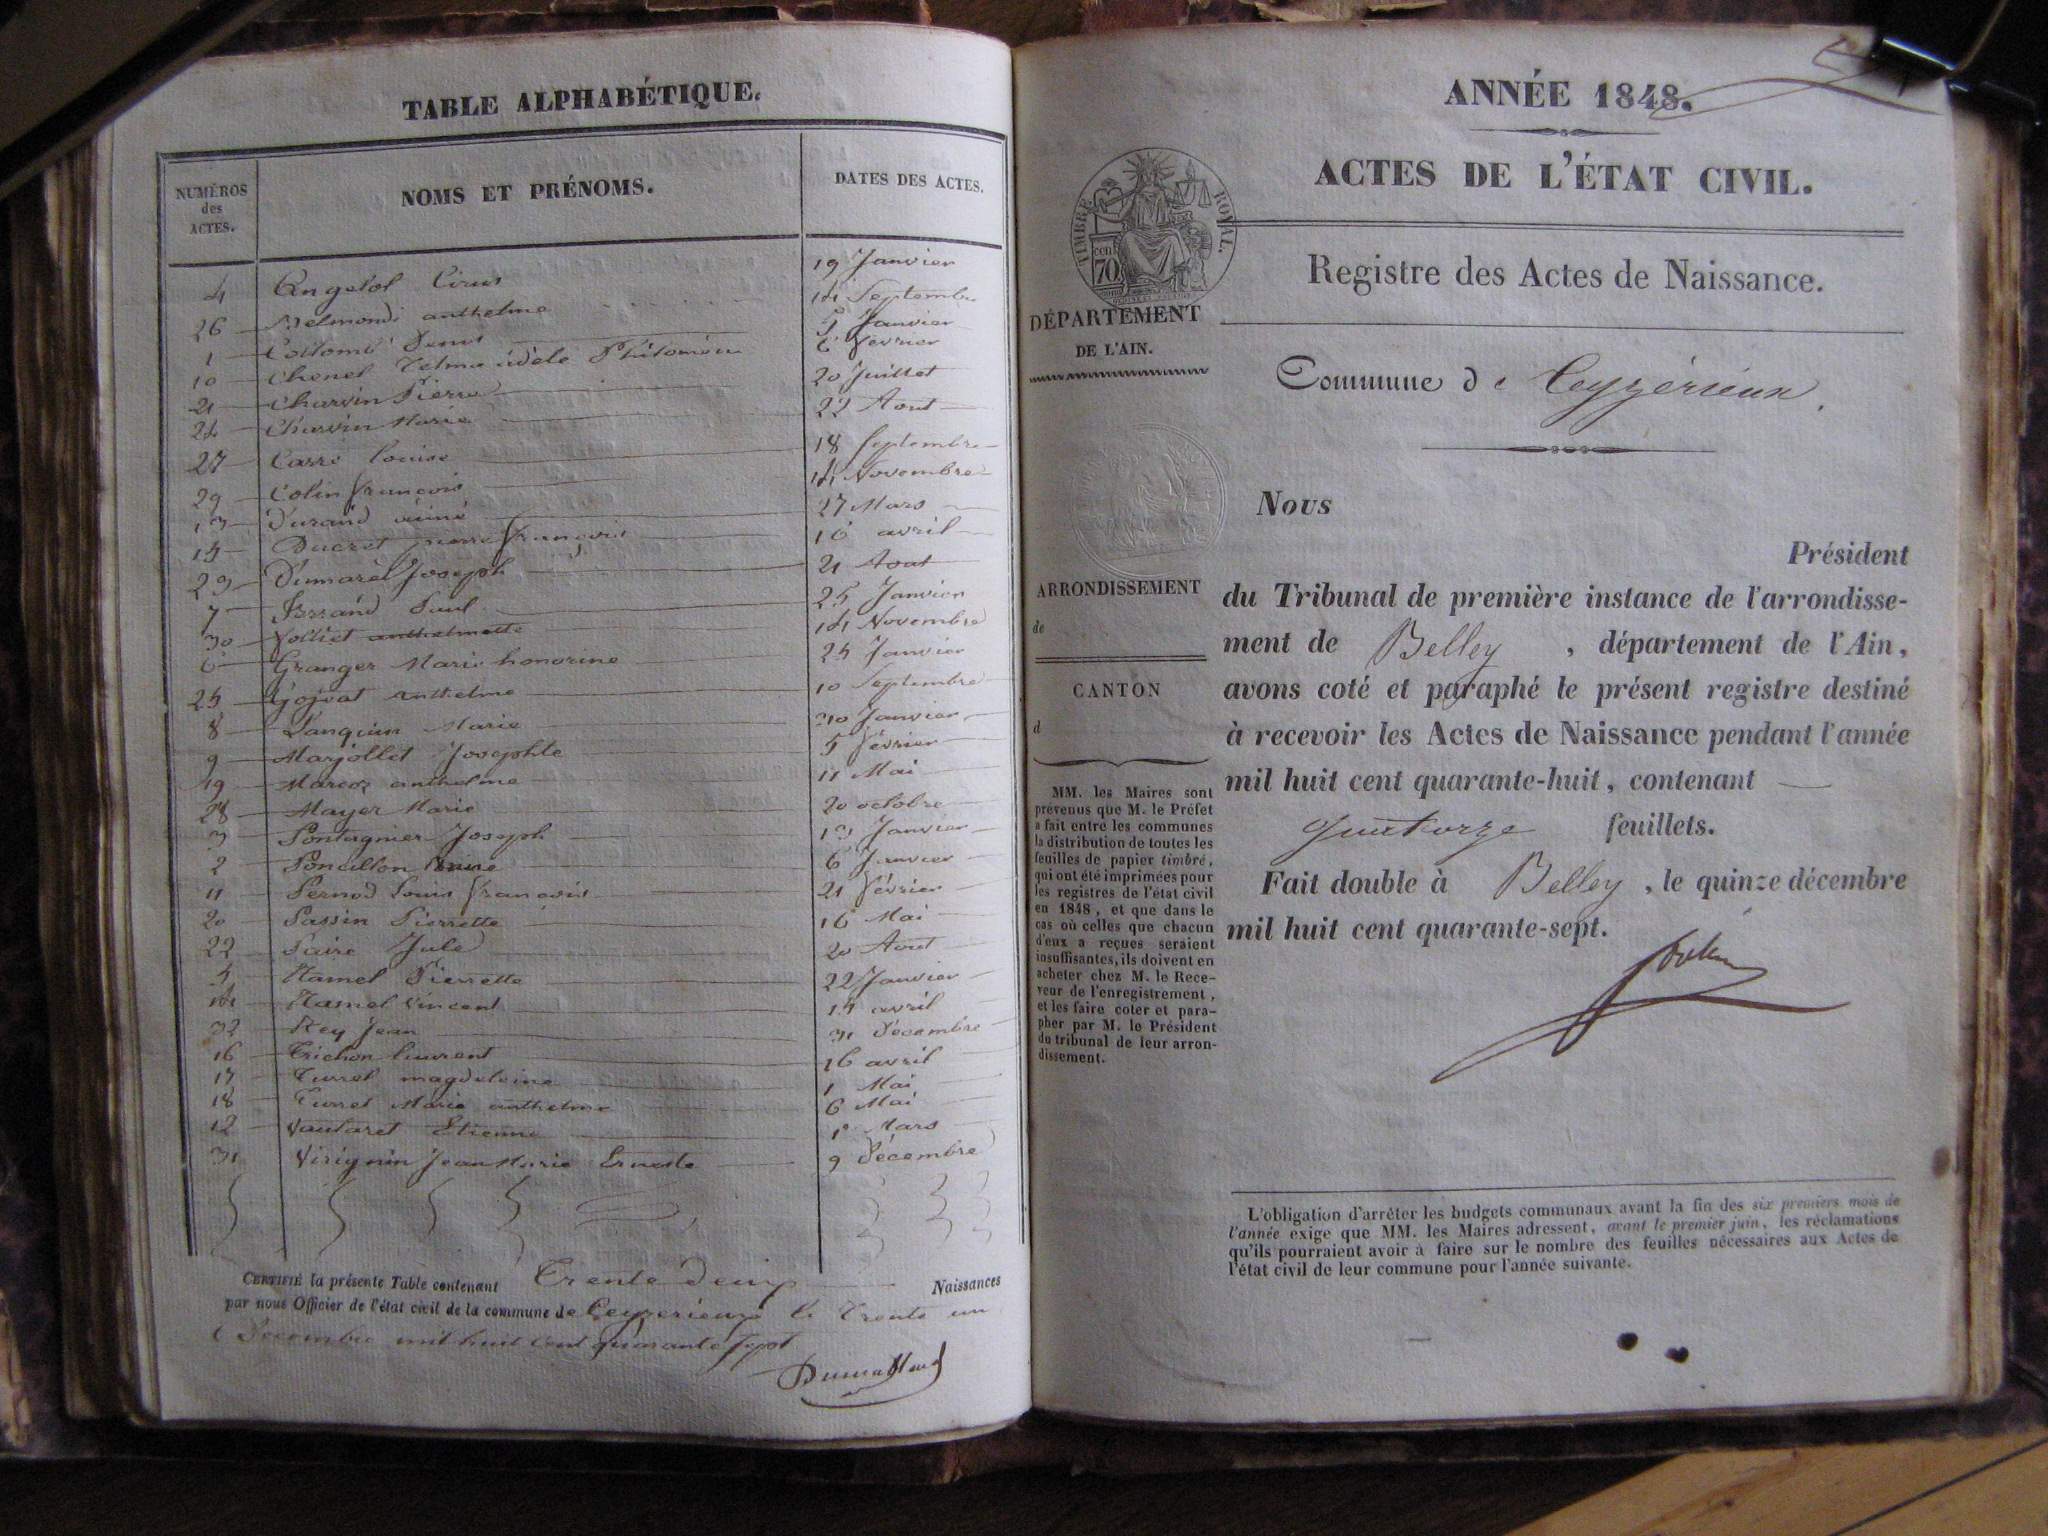 TABLE ALPHABÉTIQUE.
NUMÉROS
des
ACTES.
NOMS ET PRÉNOMS.
DATES DES ACTES.
4 19 Janvier
26 anthelme 14 Septembre
1 5 Janvier
10 Chenel Zelma adèle Philomène 6 Février
21 Charvin Pierre 20 Juillet
24 Charvin Marie 22 Aout
27 Carré louise 18 Septembre
29 Colin françois 14 Novembre
13 Durand 27 Mars
15 Ducret pierre françois 16 avril
23 Dumarêt Joseph 21 Aout
7 Ferrand Paul 25 Janvier
30 anthelmette 14 Novembre
6 Granger Marie honorine 25 Janvier
25 Gojoat anthelme 10 Septembre
8 Marie 30 Janvier
9 Marjollet Josephte 5 Février
19 anthelme 11 Mai
28 Mayer Marie 20 octobre
3 Joseph 13 Janvier
2 6 Janvier
11 Pernod Louis françois 21 Février
20 Passin Pierrette 16 Mai
22 Jule 20 Aout
5 Ramel Pierrette 22 Janvier
14 Ramel Vincent 14 avril
32 Rey Jean 31 Décembre
16 Trichon laurent 16 avril
17 Turrel magdeleine 1 Mai
18 Turrel Marie anthelme 6 Mai
12 Vautaret Etienne 1er Mars
31 Virignin Jean Marie Erneste 9 Décembre
CERTIFIÉ la présente Table contenant Trente deux Naissances
par nous Officier de l'état civil de la commune de Ceyzerieux le Trente un
Décembre mil huit cent quarante sept
ANNÉE 1848.
ACTES DE L'ÉTAT CIVIL.
TIMBRE ROYAL.
cen.
70
Registre des Actes de Naissance.
DÉPARTEMENT
DE L'AIN.
Commune de Ceyzérieux.
Nous
Président
ARRONDISSEMENT
de
CANTON
d
du Tribunal de première instance de l'arrondisse-
ment de Belley, département de l'Ain,
avons coté et paraphé le présent registre destiné
à recevoir les Actes de Naissance pendant l'année
mil huit cent quarante-huit, contenant
quatorze feuillets.
Fait double à Belley, le quinze décembre
mil huit cent quarante-sept.
MM. les Maires sont
prévenus que M. le Préfet
a fait entre les communes
la distribution de toutes les
feuilles de papier timbré,
qui ont été imprimées pour
les registres de l'état civil
en 1848, et que dans le
cas où celles que chacun
d'eux a reçues seraient
insuffisantes, ils doivent en
acheter chez M. le Rece-
veur de l'enregistrement,
et les faire coter et para-
pher par M. le Président
du tribunal de leur arron-
dissement.
L'obligation d'arrêter les budgets communaux avant la fin des six premiers mois de
l'année exige que MM. les Maires adressent, avant le premier juin, les réclamations
qu'ils pourraient avoir à faire sur le nombre des feuilles nécessaires aux Actes de
l'état civil de leur commune pour l'année suivante.